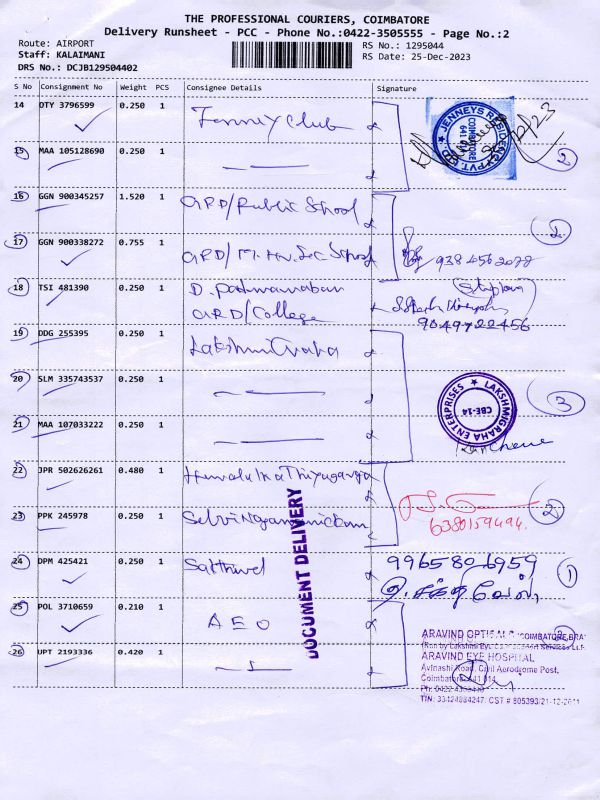 THE PROFESSIONAL COURIERS, COIMBATORE
Delivery Runsheet - PCC - Phone No.:0422-3505555 - Page No.:2
Route: AIRPORT
Staff: KALAIMANI
DRS No.: DCJB129504402
RS No.: 1295044
RS Date: 25-Dec-2023
S No Consignment No Weight PCS Consignee Details Signature
14 DTY 3796599 0.250 1 Jenney Club
JENNEYS RESIDENCY PVT. LTD. COIMBATORE 641
15 MAA 105128690 0.250 1 2
16 GGN 900345257 1.520 1 GRD/Public School 2
17 GGN 900338272 0.755 1 GRD/M.Hr.Sec School
18 TSI 481390 0.250 1 D. Padmanaban
GRD/College 9049722456
19 DDG 255395 0.250 1 LakshmiGraha
20 SLM 335743537 0.250 1 3
LAKSHMIGRAHA ENTERPRISES CBE-14
21 MAA 107033222 0.250 1
22 JPR 502626261 0.480 1
23 PPK 245978 0.250 1 6380159494. 2
24 DPM 425421 0.250 1 Sakthivel 9965806959 1
சக்திவேல்
DOCUMENT DELIVERY
25 POL 3710659 0.210 1 AEO
ARAVIND OPTICALS (COIMBATORE BRA
26 UPT 2193336 0.420 1
ARAVIND EYE HOSPITAL
Avinashi Road, Civil Aerodrome Post,
Coimbatore-641 014
TIN: 33424884247: CST # 805393/21-12-2011